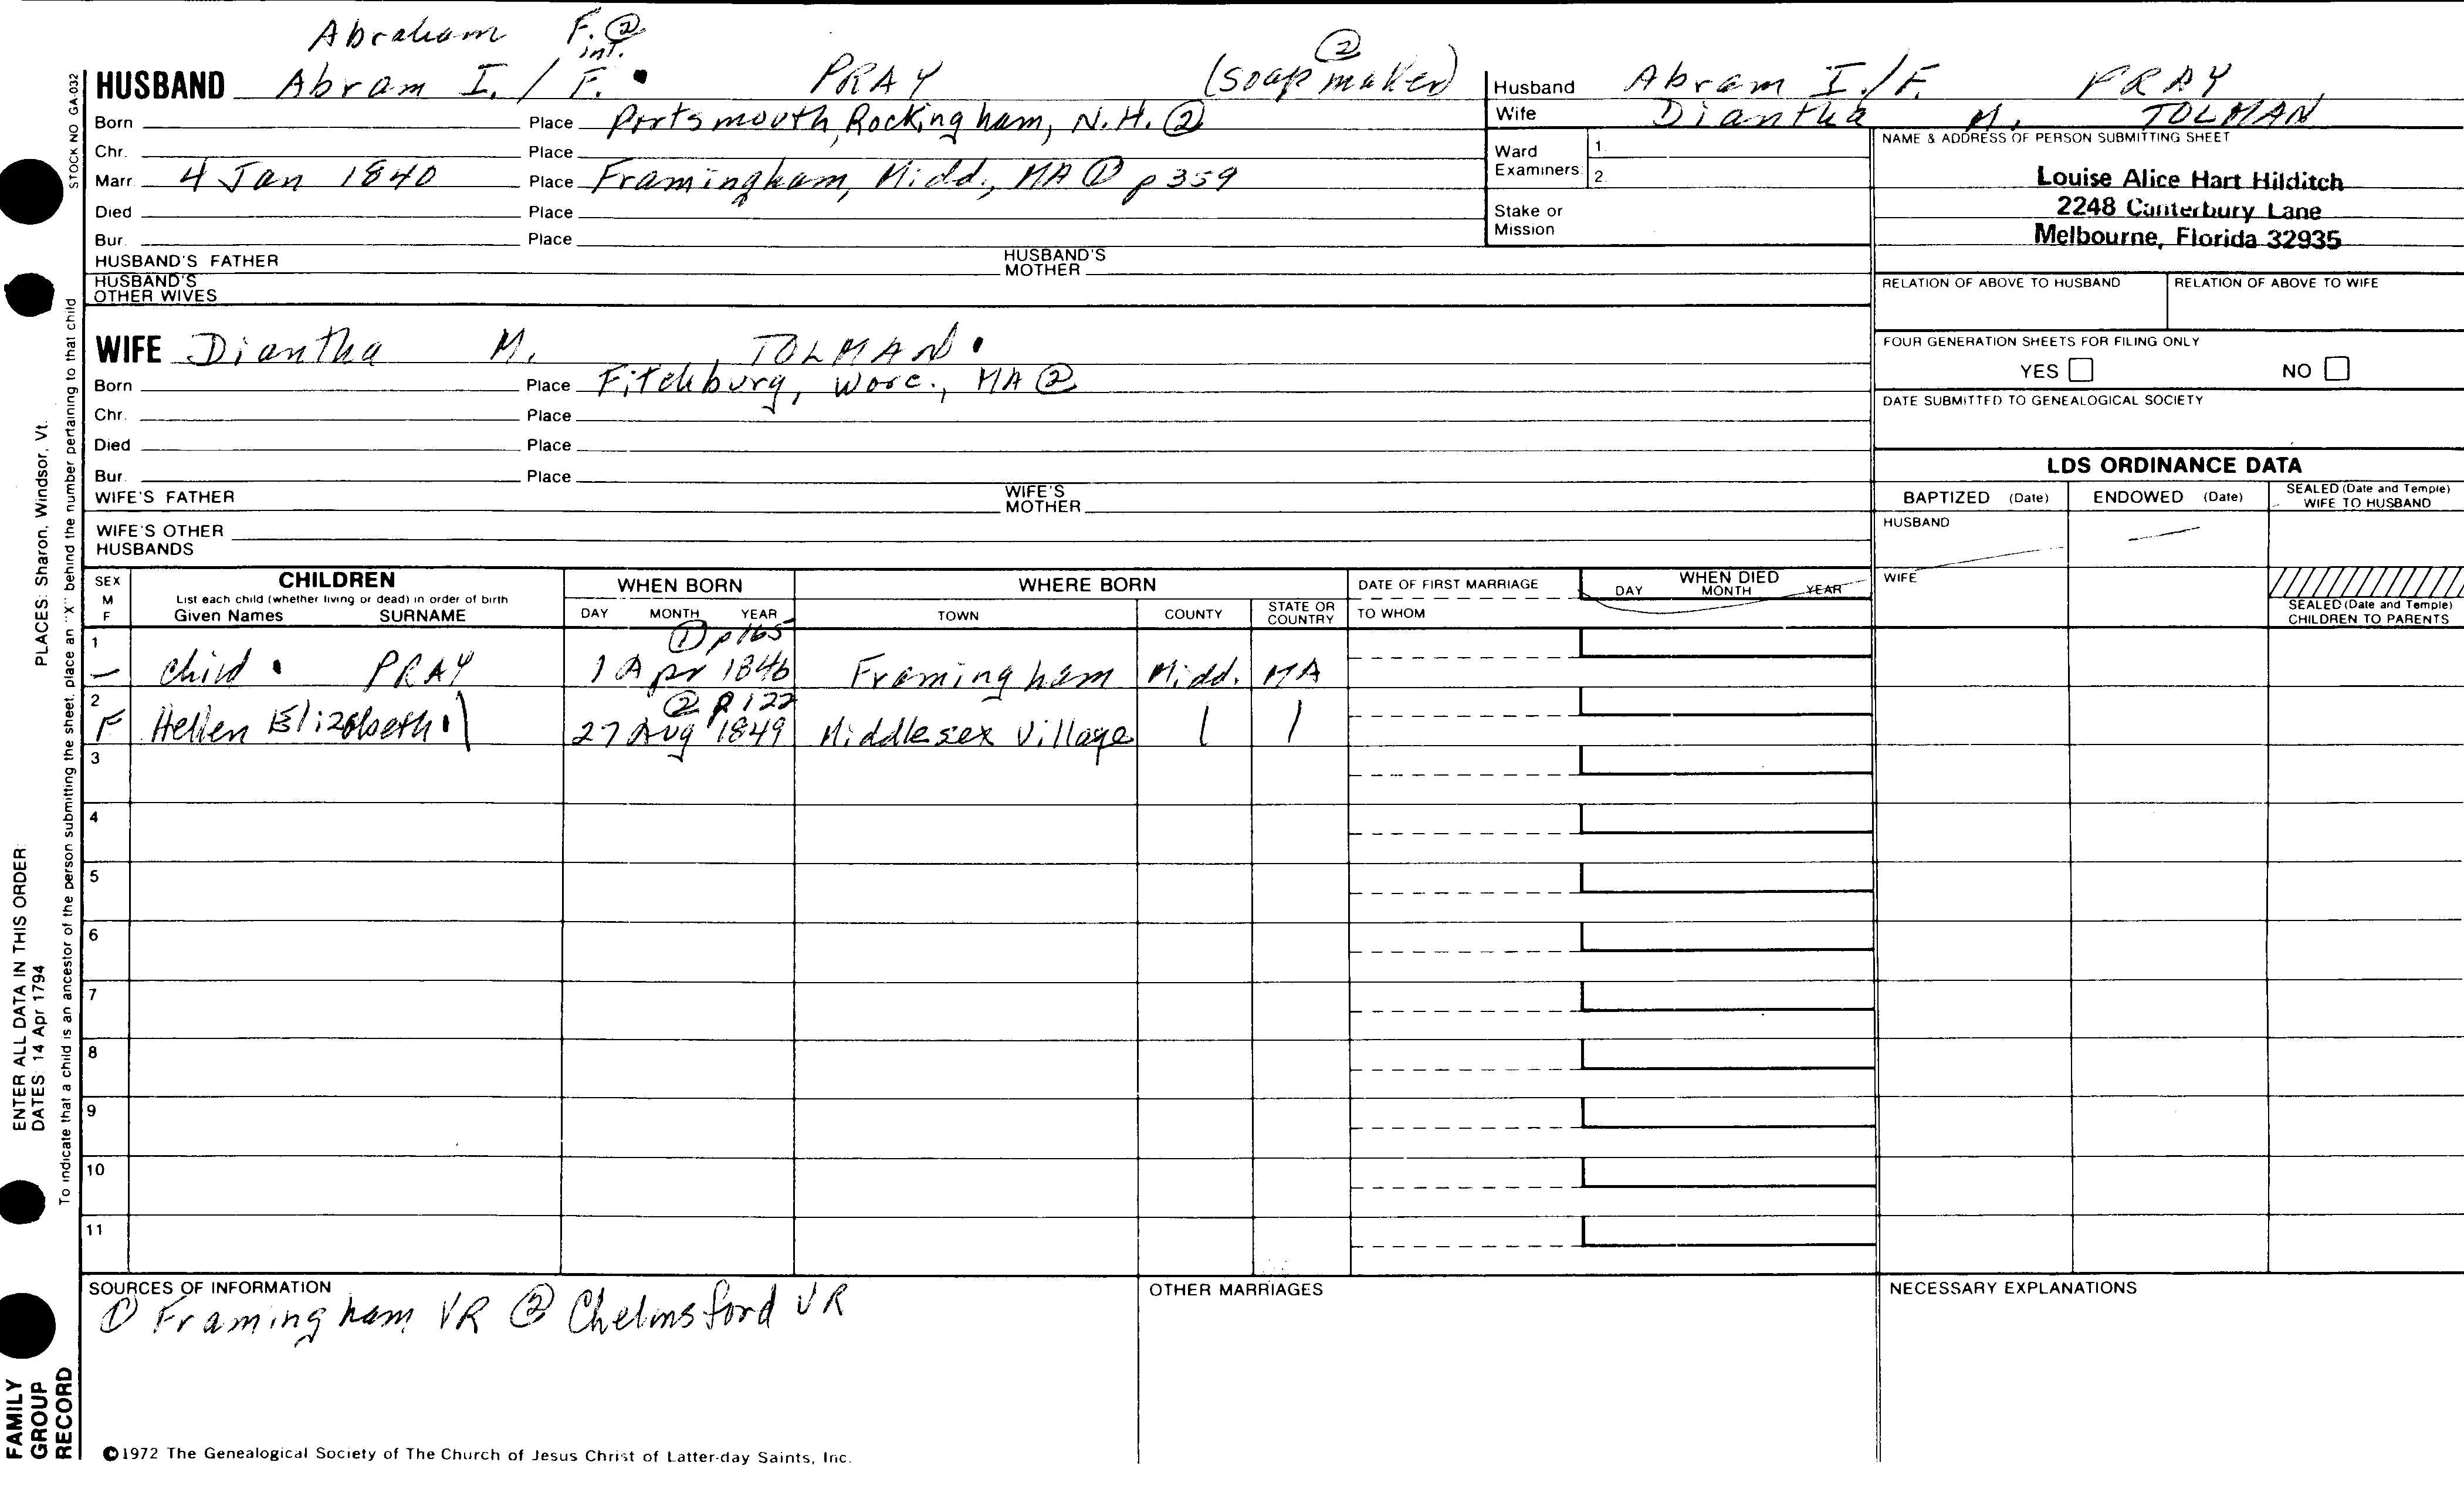 Abraham F. ②
int.
HUSBAND Abram I. / F. PRAY (soap maker) ②
Born Place Portsmouth, Rockingham, N.H. ②
Chr. Place
Marr. 4 Jan 1840 Place Framingham, Midd., MA ① p 359
Died Place
Bur. Place
HUSBAND'S FATHER HUSBAND'S MOTHER
HUSBAND'S OTHER WIVES
Husband Abram I./F. PRAY
Wife Diantha M. TOLMAN
Ward Examiners: 1.
2.
Stake or Mission
NAME & ADDRESS OF PERSON SUBMITTING SHEET
Louise Alice Hart Hilditch
2248 Canterbury Lane
Melbourne, Florida 32935
RELATION OF ABOVE TO HUSBAND RELATION OF ABOVE TO WIFE
FOUR GENERATION SHEETS FOR FILING ONLY
YES NO
DATE SUBMITTED TO GENEALOGICAL SOCIETY
WIFE Diantha M. TOLMAN
Born Place Fitchburg, Worc., MA ②
Chr. Place
Died Place
Bur. Place
WIFE'S FATHER WIFE'S MOTHER
WIFE'S OTHER HUSBANDS
LDS ORDINANCE DATA
BAPTIZED (Date) ENDOWED (Date) SEALED (Date and Temple) WIFE TO HUSBAND
HUSBAND
WIFE
SEALED (Date and Temple) CHILDREN TO PARENTS
SEX M F
CHILDREN
List each child (whether living or dead) in order of birth
Given Names SURNAME
WHEN BORN
DAY MONTH YEAR
WHERE BORN
TOWN COUNTY STATE OR COUNTRY
DATE OF FIRST MARRIAGE
TO WHOM
WHEN DIED
DAY MONTH YEAR
① p165
1 – child PRAY 1 Apr 1846 Framingham Midd. MA
② p 122
2 F Hellen Elizabeth 27 Aug 1849 Middlesex Village
3
4
5
6
7
8
9
10
11
SOURCES OF INFORMATION
① Framingham VR ② Chelmsford VR
OTHER MARRIAGES
NECESSARY EXPLANATIONS
©1972 The Genealogical Society of The Church of Jesus Christ of Latter-day Saints, Inc.
STOCK NO GA-032
To indicate that a child is an ancestor of the person submitting the sheet, place an "X" behind the number pertaining to that child
ENTER ALL DATA IN THIS ORDER:
DATES: 14 Apr 1794
PLACES: Sharon, Windsor, Vt.
FAMILY
GROUP
RECORD